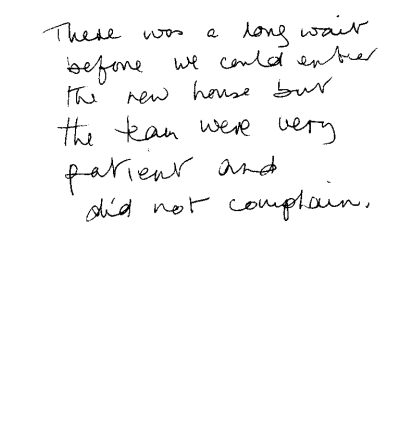 There was a long wait
before we could enter
the new house but
the team were very
patient and
did not complain.